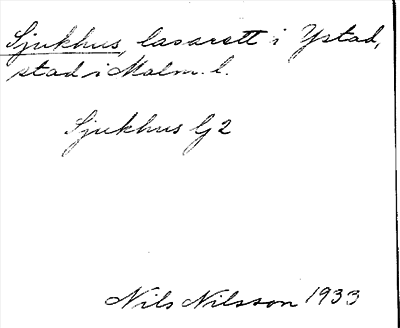 Sjukhus, lasarett i Ystad,
stad i Malm. l.
Sjukhus G 2
Nils Nilsson 1933